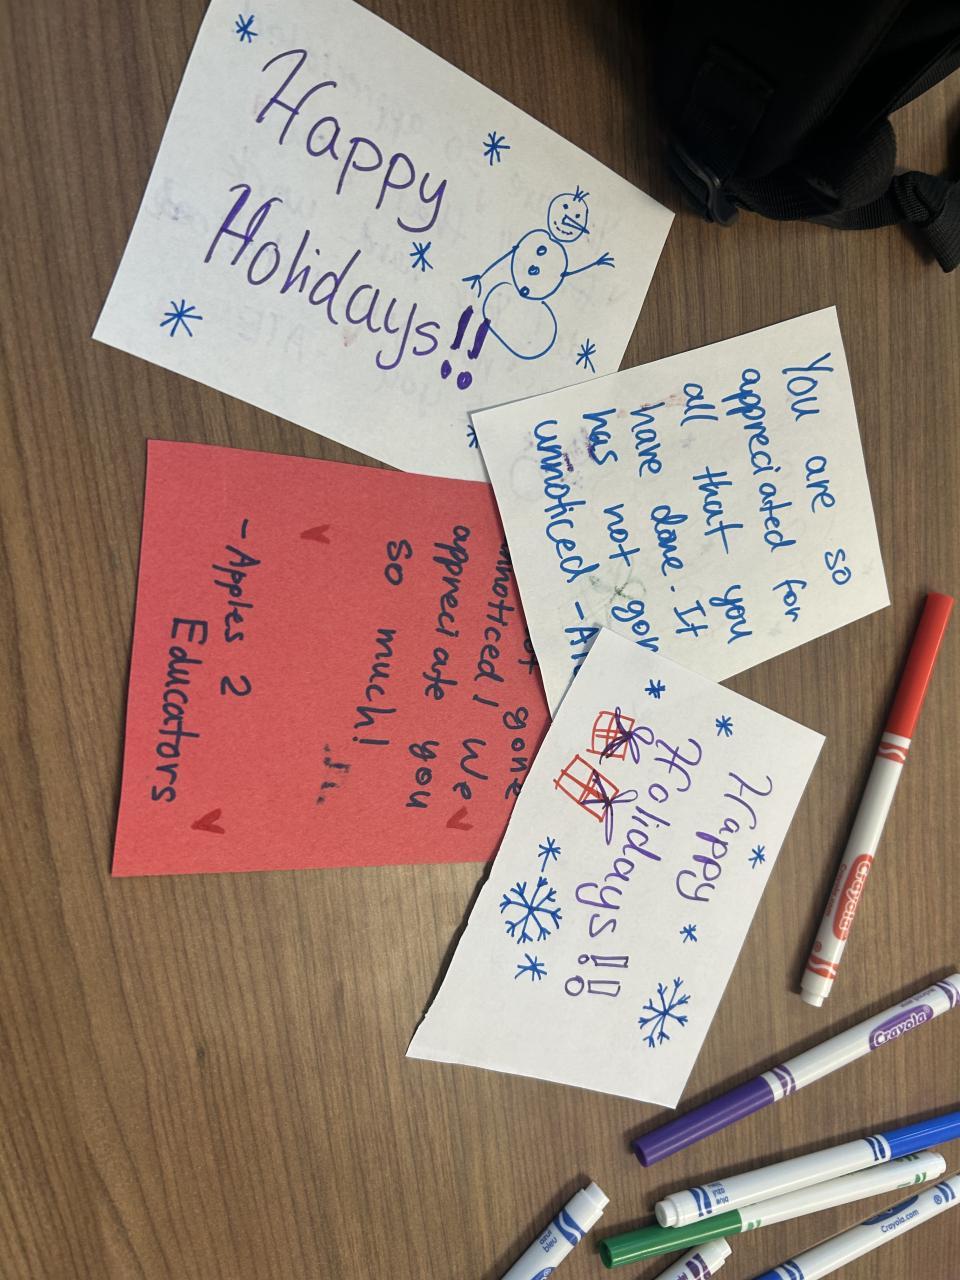 Happy
Holidays!!
You are so
appreciated for
all that you
have done. It
has not gon
unnoticed
gone
unnoticed! We
appreciate you
so much!
-Apples 2
Educators
Happy
Holidays!!
Crayola
Crayola.com
Crayola
Crayola.com
azul
bleu